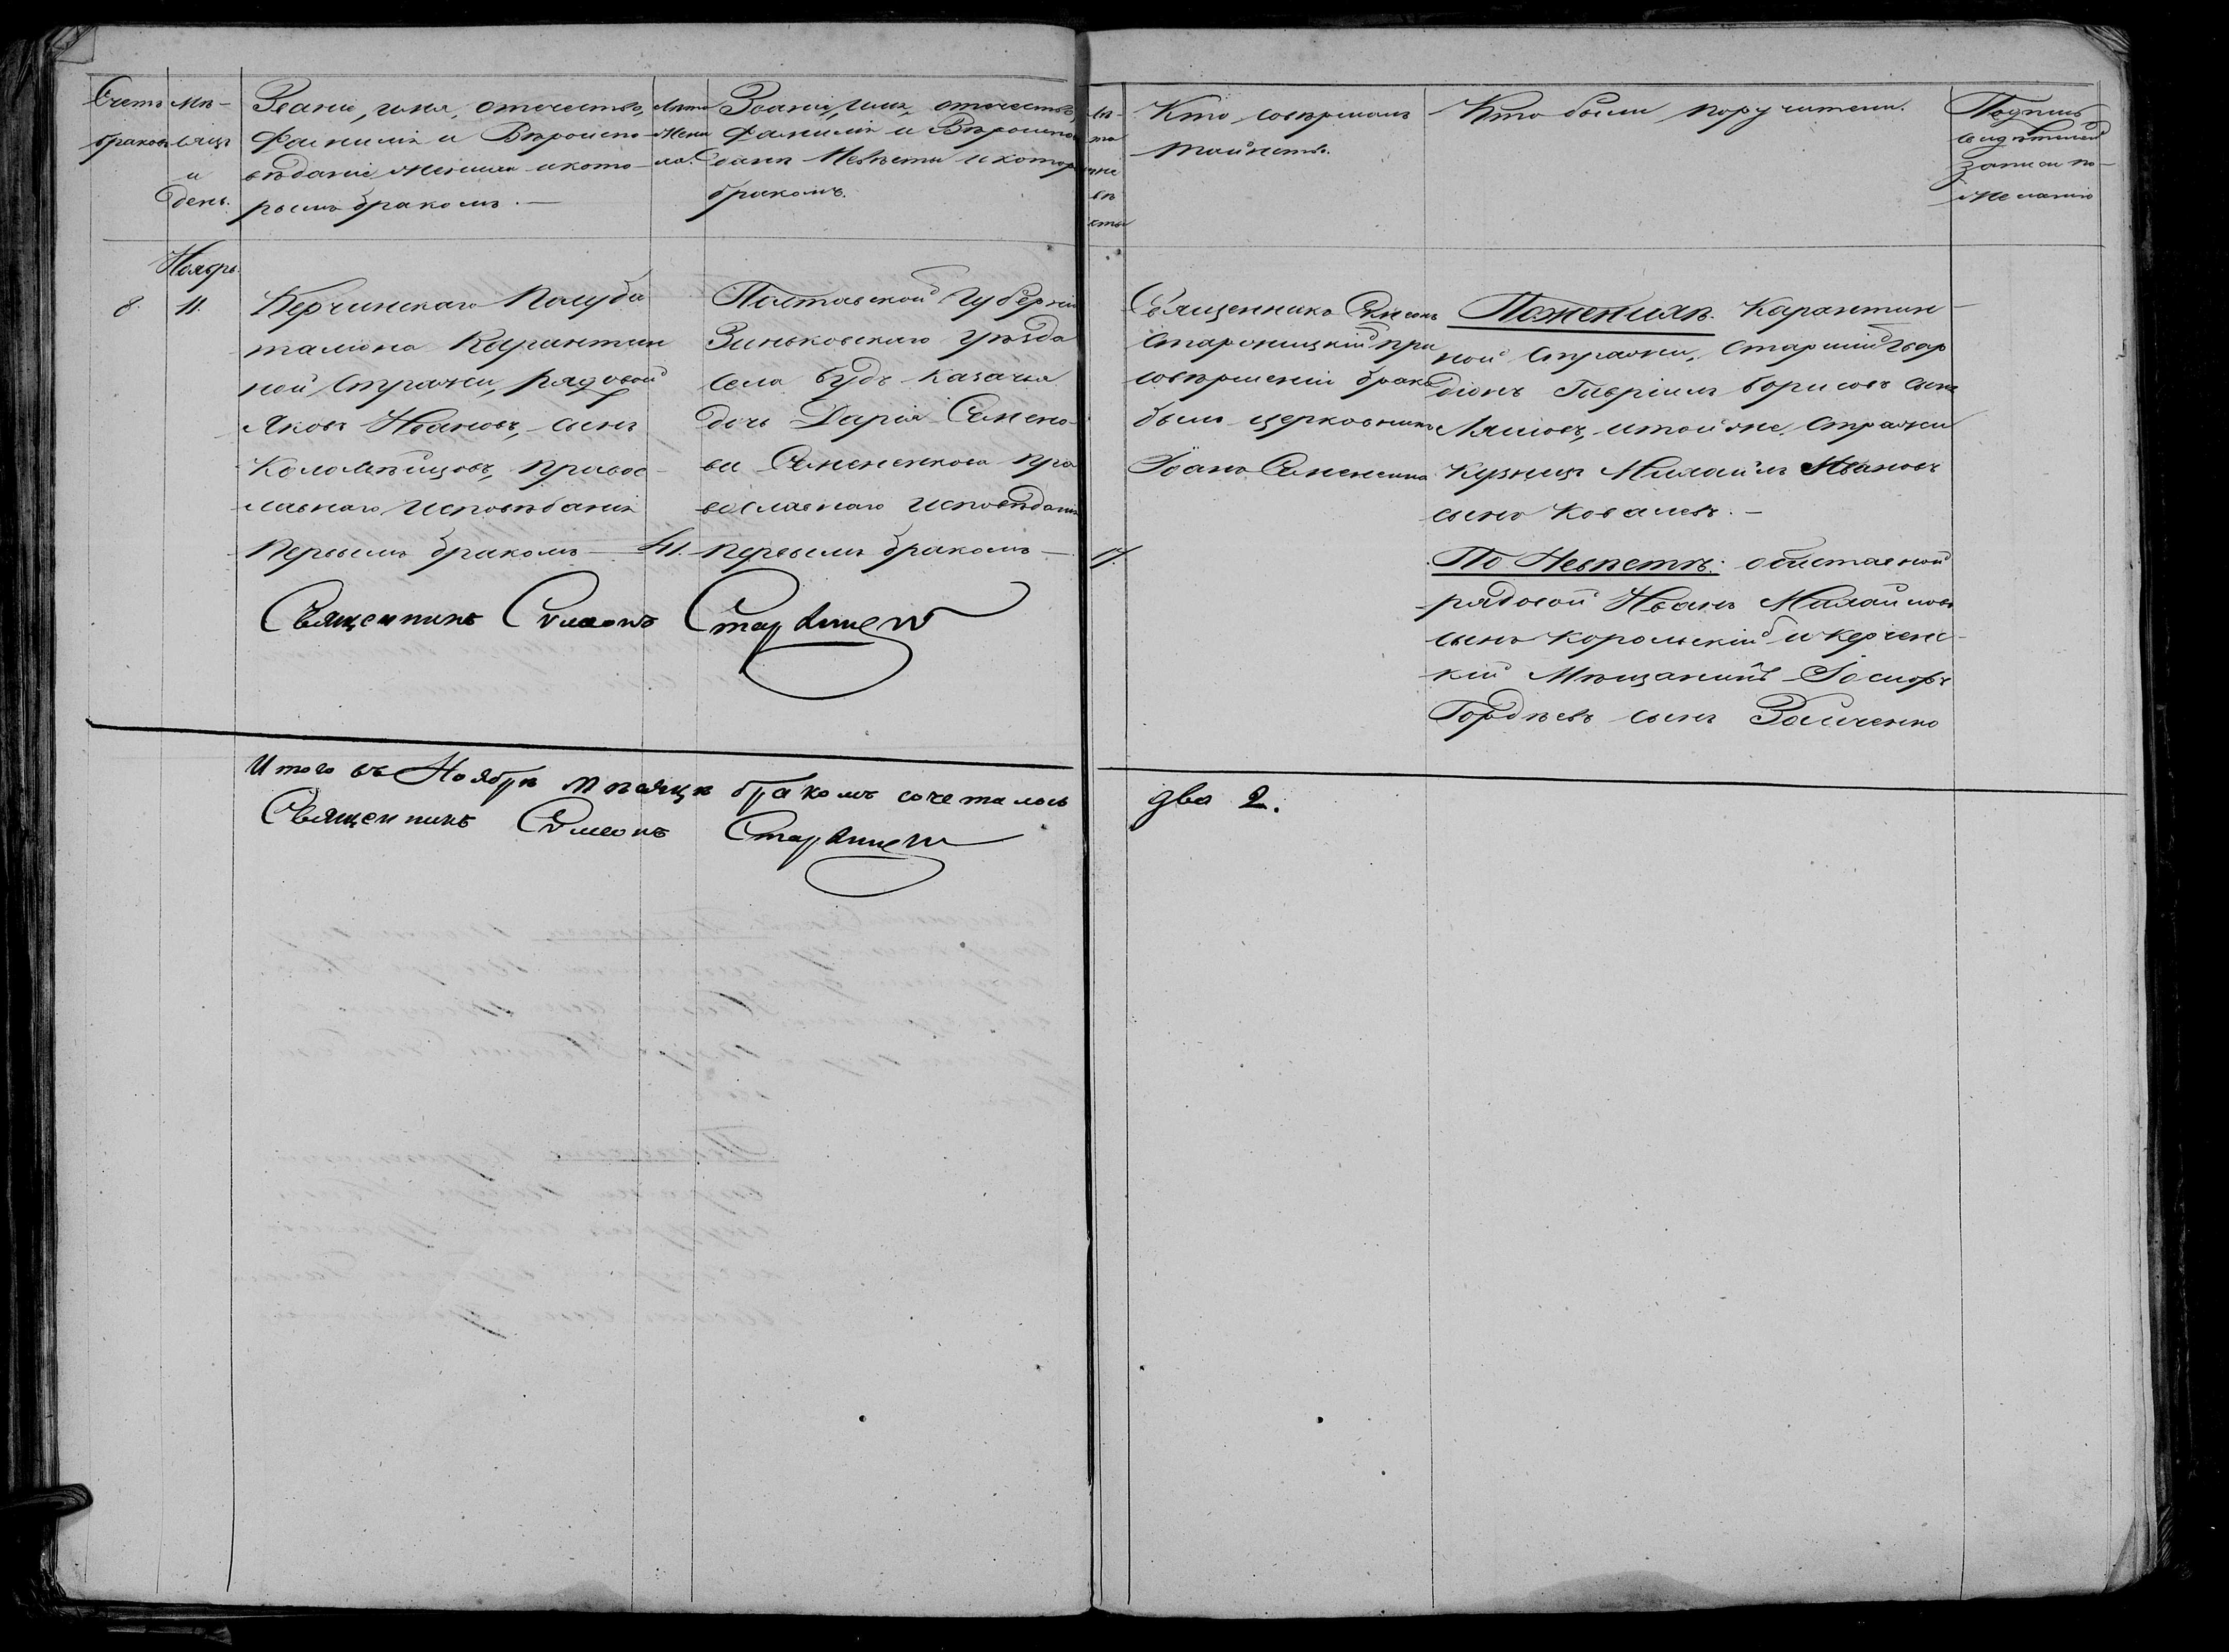 Счетъ браковъ
Мѣсяцъ и день.
Званіе, имя, отчество,
фамилія и Вѣроиспо-
вѣданіе жениха и кото-
рымъ бракомъ.—
Лѣта жениха.
Званіе, имя, отчество,
фамилія и Вѣроиспо
даніе Невѣсты и котор
бракомъ.
Лѣ-
та
не
вѣ
сты
Кто совершалъ
таинство.
Кто были поручители.
Подпись
свидѣтелей
записи по-
желанію
Ноябрь.
8.
11.
Керчинскаго Полуба
таліона Карантин
ной Стражи, рядовой
Яковъ Ивановъ, сынъ
Коломѣйцовъ, Правос-
лавнаго исповѣданія
Первымъ бракомъ —
41.
Полтавской Губерніи
Зиньковскаго уѣзда
села Будъ казачья
дочь Дарія Семено-
ва Семененкова пра
вославнаго исповѣданія
первымъ бракомъ —
17.
Священникъ Симеонъ
Старницкій при
совершеніи брака
былъ церковникъ
Іоанъ
По женихѣ. Карантин-
ной Стражи, Старшій Гвар
діонъ Гавріилъ Борисовъ сынъ
Ляшовъ, и той же Стражи
Кузнецъ Михаилъ Ивановъ
сынъ Ковалевъ.—
По Невѣстѣ: отставной
рядовой Иванъ Михайловъ
сынъ Корольскій и Керченс-
кій Мѣщанинъ Іосифъ
Гордѣевъ сынъ Заиченко
Священникъ Симеонъ Старницкій
Итого въ Ноябрѣ мѣсяцѣ бракомъ сочеталось два 2.
Священникъ Симеонъ Старницкій